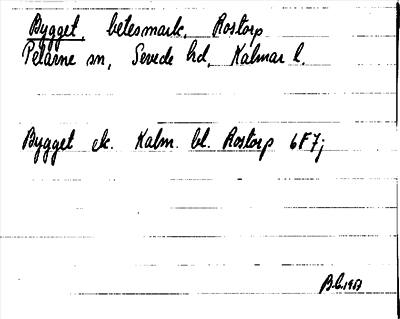 Bygget, betesmark, Rostorp
Pelarne sn, Sevede hd, Kalmar l.
Bygget ek. Kalm. bl. Rostorp 6F7j
B.L. 1957